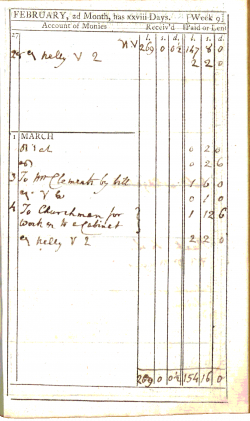 FEBRUARY, 2d Month, has xxviii Days. [Week 9]
Account of Monies Receiv'd Paid or Lent
27 l. s. d. l. s. d.
N V 269 0 0½ 147 8 0
Nelly V 2 2 2 0
1 MARCH
0 2 0
0 2 6
3 To Mr Clements by bill 1 6 0
0 1 0
4 To Churchman for 1 12 6
work on the Cabinet
Nelly V 2 2 2 0
269 0 0½ 154 16 0